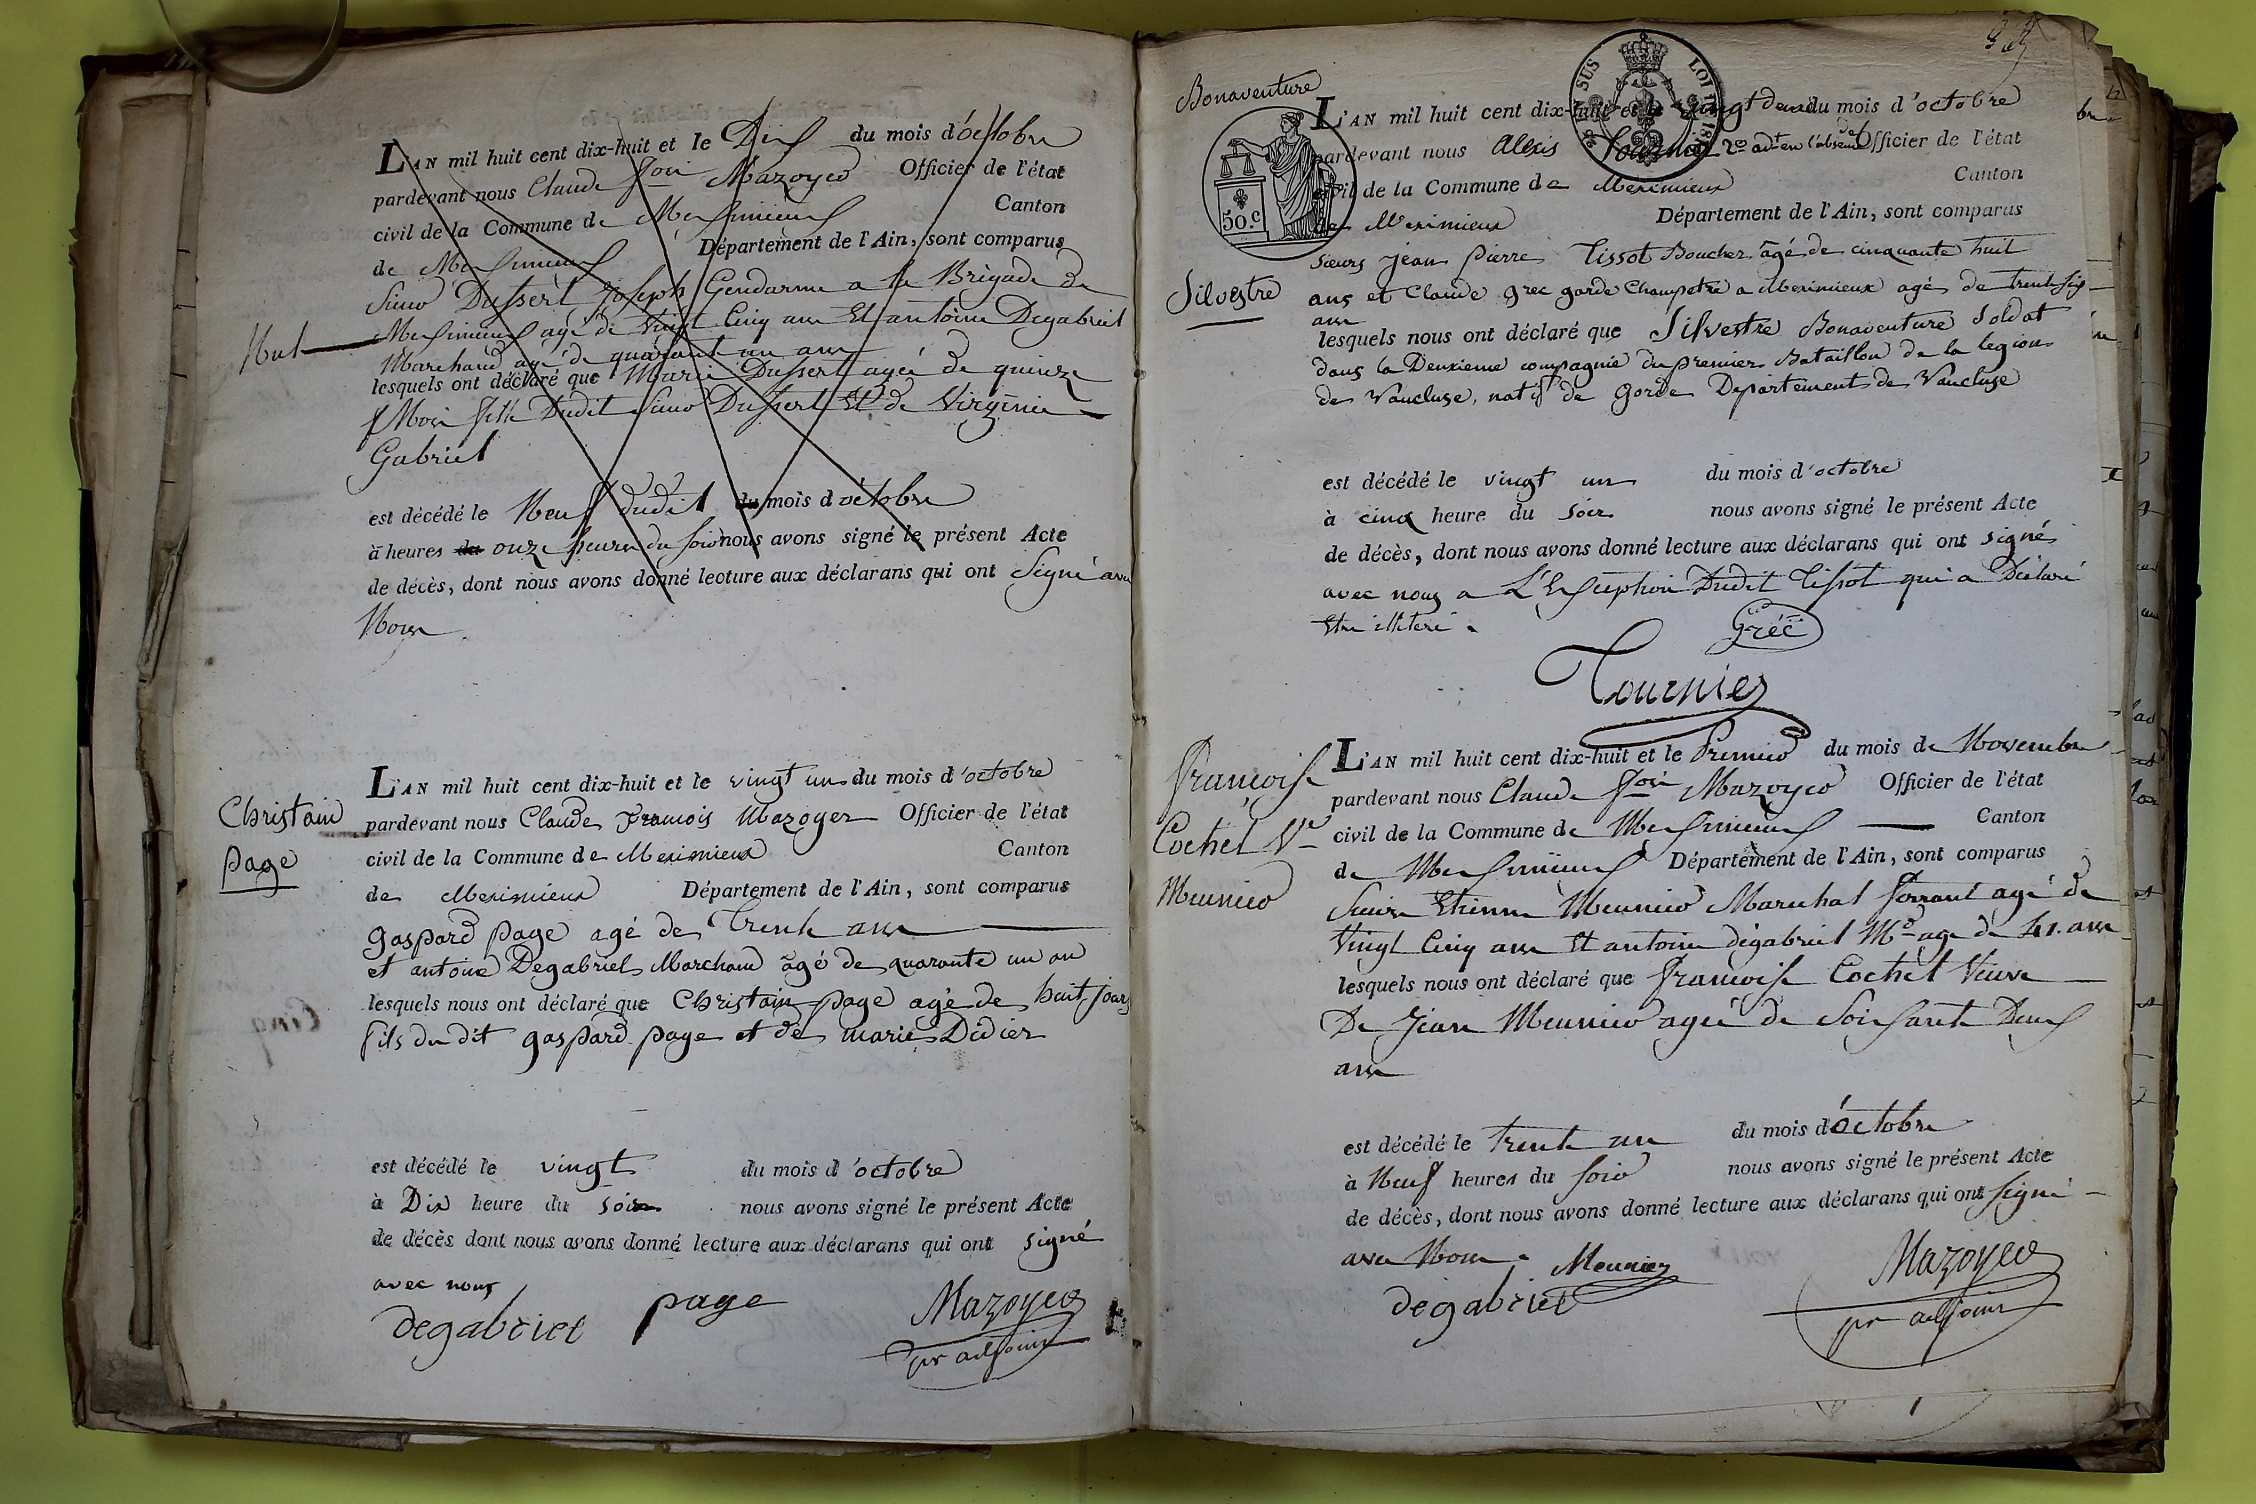 L'AN mil huit cent dix-huit et le Dix du mois d'octobre
pardevant nous Claude fcois Mazoyer Officier de l'état
civil de la Commune de Meximieux Canton
de Meximieux Département de l'Ain, sont comparus
Sieur Dussert Joseph Gendarme a la Brigade de
Nul Meximieux agé de vingt Cinq ans Et antoine Degabriel
Marchand agé de quarante un ans
lesquels ont déclaré que Marie Dussert agée de quinze
Mois fille Dudit Sieur Dussert Et de Virginie
Gabriel
est décédé le Neuf dudit du mois d'octobre
à heures du onze heures du soir nous avons signé le présent Acte
de décès, dont nous avons donné lecture aux déclarans qui ont Signé avec
Nous
Christain
page
L'AN mil huit cent dix-huit et le vingt un du mois d'octobre
pardevant nous Claude francois Mazoyer Officier de l'état
civil de la Commune de Meximieux Canton
de Meximieux Département de l'Ain, sont comparus
gaspard page agé de Trente ans
et antoine Degabriel Marchand agé de quarante un an
lesquels nous ont déclaré que Christain page agé de huit jours
fils du dit gaspard page et de marie Didier
est décédé le vingt du mois d'octobre
à Dix heure du soir nous avons signé le présent Acte
de décès dont nous avons donné lecture aux déclarans qui ont signé
avec nous
degabriel page Mazoyer
pr adjoint
Bonaventure
Silvestre
50.c
SUS LOI
L'AN mil huit cent dix-huit et le vingt deux du mois d'octobre
pardevant nous Alexis Tournier 2e adt en l'absence de l'Officier de l'état
civil de la Commune de Meximieux Canton
de Meximieux Département de l'Ain, sont comparus
Sieurs jean pierre Tissot Boucher agé de cinquante huit
ans et Claude grec garde Champetre a Meximieux agé de trente six
ans
lesquels nous ont déclaré que Silvestre Bonaventure Soldat
dans la Deuxieme compagnie du premier Bataillon de la legion
de Vaucluse, natif de Gorde Departement de Vaucluse
est décédé le vingt un du mois d'octobre
à cinq heure du soir nous avons signé le présent Acte
de décès, dont nous avons donné lecture aux déclarans qui ont signé
avec nous a L'Exception Dudit Tissot qui a Déclaré
Etre illiteré
Gréc
Tournier
françoise
Cochet Ve
Meunier
L'AN mil huit cent dix-huit et le Premier du mois de Novembre
pardevant nous Claude fcois Mazoyer Officier de l'état
civil de la Commune de Meximieux Canton
de Meximieux Département de l'Ain, sont comparus
Sieurs Etienne Meunier Marechal ferrant agé de
Vingt Cinq ans Et antoine dégabriel Md age de 41. ans
lesquels nous ont déclaré que francoise Cochet Veuve
De Jean Meunier agée de Soixante Deux
ans
est décédé le trente un du mois d'Octobre
à Neuf heures du soir nous avons signé le présent Acte
de décès, dont nous avons donné lecture aux déclarans qui ont signé
avec Nous Meunier Mazoyer
degabriel pr adjoint